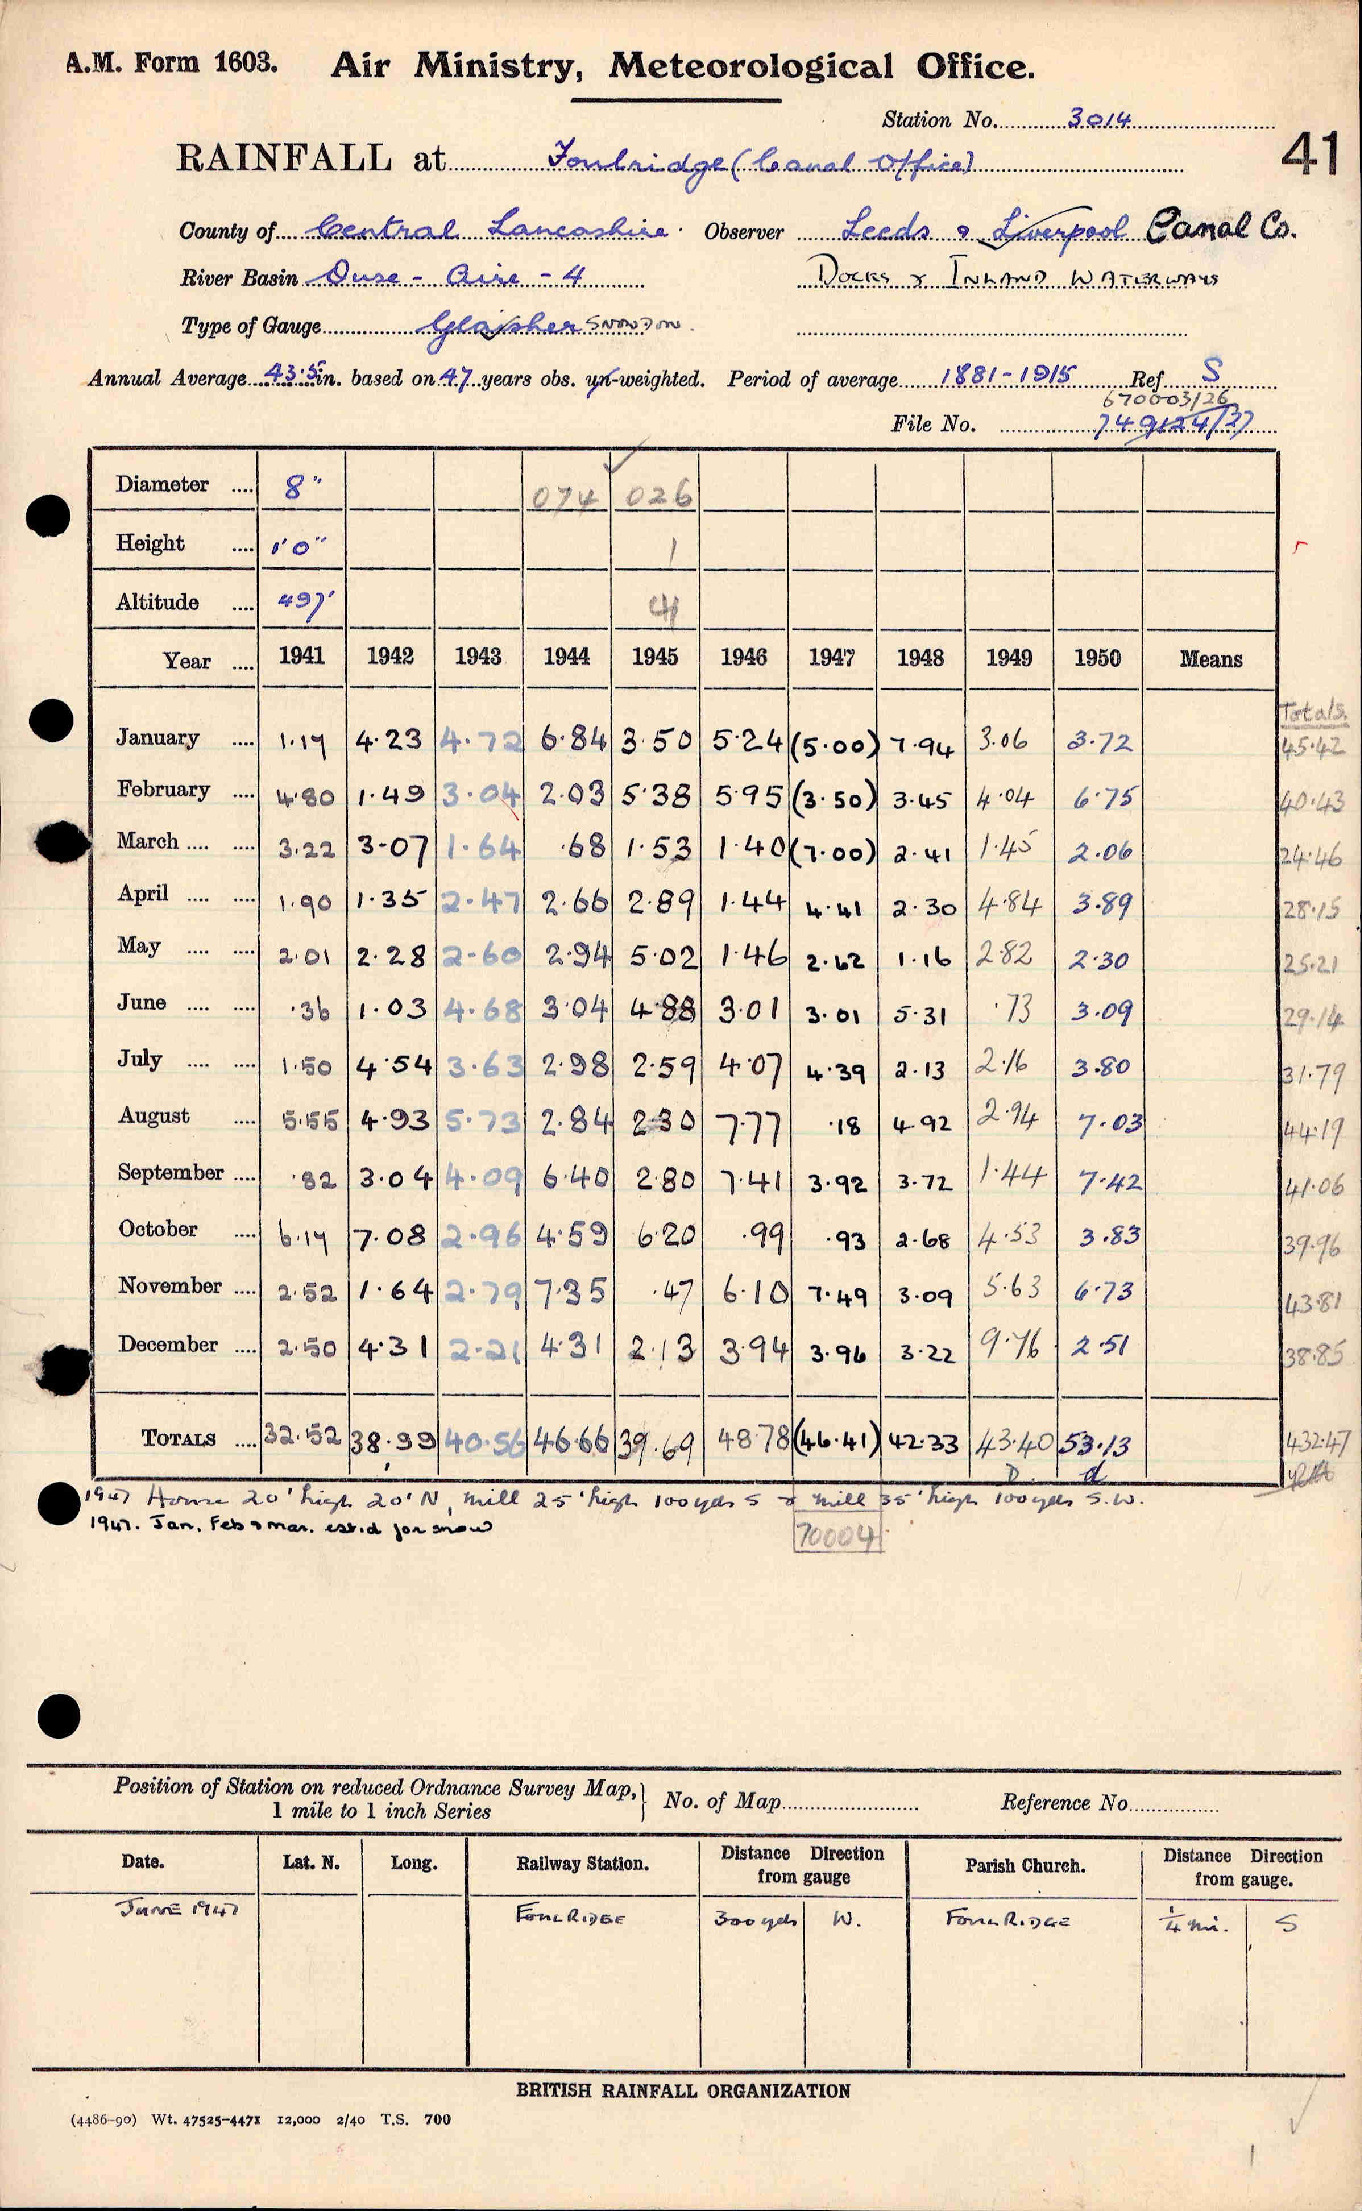 A.M. Form 1603. Air Ministry, Meteorological Office.
Station No. 3014
41
RAINFALL at Foulridge (Canal Office)
County of Central Lancashire. Observer Leeds & Liverpool Canal Co.
River Basin Ouse - Aire - 4 DOCKS & INLAND WATERWAYS
Type of Gauge Glaisher SNOWDON.
Annual Average 43.5 in. based on 47 years obs. un-weighted. Period of average 1881-1915 Ref. S
670003/26
File No. 749124/37
Diameter .... 8" 074 026
Height .... 1'0" 1
Altitude .... 497'
Year .... 1941 1942 1943 1944 1945 1946 1947 1948 1949 1950 Means
Totals
January .... 1.19 4.23 4.72 6.84 3.50 5.24 (5.00) 7.94 3.06 3.72 45.42
February .... 4.80 1.49 3.04 2.03 5.38 5.95 (3.50) 3.45 4.04 6.75 40.43
March .... .... 3.22 3.07 1.64 .68 1.53 1.40 (7.00) 2.41 1.45 2.06 24.46
April .... .... 1.90 1.35 2.47 2.66 2.89 1.44 4.41 2.30 4.84 3.89 28.15
May .... .... 2.01 2.28 2.60 2.94 5.02 1.46 2.62 1.16 2.82 2.30 25.21
June .... .... .36 1.03 4.68 3.04 4.88 3.01 3.01 5.31 .73 3.09 29.14
July .... .... 1.50 4.54 3.63 2.98 2.59 4.07 4.39 2.13 2.16 3.80 31.79
August .... 5.55 4.93 5.73 2.84 2.30 7.77 .18 4.92 2.94 7.03 44.19
September .... .82 3.04 4.09 6.40 2.80 7.41 3.92 3.72 1.44 7.42 41.06
October .... 6.19 7.08 2.96 4.59 6.20 .99 .93 2.68 4.53 3.83 39.96
November .... 2.52 1.64 2.79 7.35 .47 6.10 7.49 3.09 5.63 6.73 43.81
December .... 2.50 4.31 2.21 4.31 2.13 3.94 3.96 3.22 9.76 2.51 38.85
TOTALS .... 32.52 38.99 40.56 46.66 39.69 48.78 (46.41) 42.33 43.40 53.13 432.47
D. d
1947 House 20' high 20' N, mill 25' high 100yds S & mill 35' high 100yds S.W.
1947. Jan, Feb & mar. est.d for snow
70004
Position of Station on reduced Ordnance Survey Map, 1 mile to 1 inch Series No. of Map Reference No.
Date. Lat. N. Long. Railway Station. Distance Direction from gauge Parish Church. Distance Direction from gauge.
JUNE 1947 FOULRIDGE 300 yds W. FOULRIDGE 1/4 mi. S
BRITISH RAINFALL ORGANIZATION
(4486-90) Wt. 47525-4471 12,000 2/40 T.S. 700